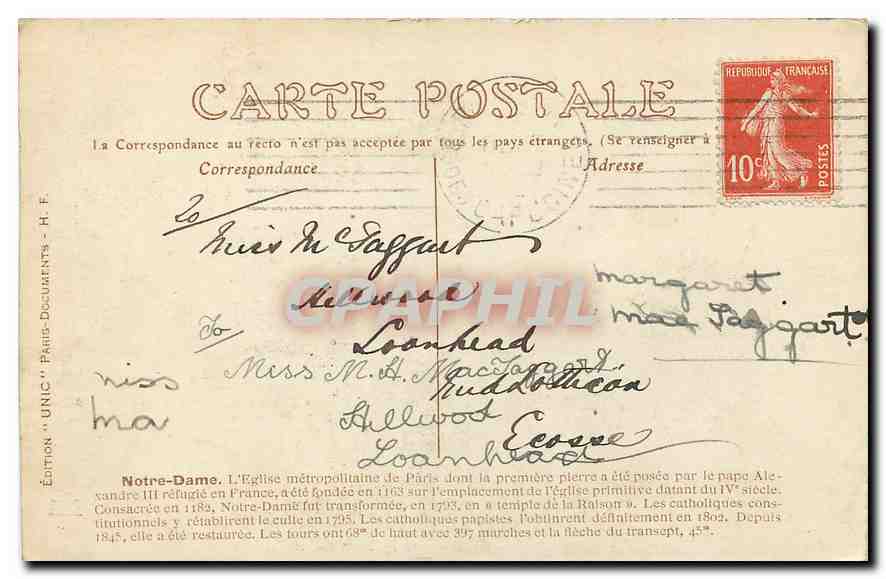 CARTE POSTALE
La Correspondance au recto n'est pas acceptée par tous les pays étrangers. (Se renseigner à
Correspondance
Adresse
REPUBLIQUE FRANÇAISE
10c
POSTES
To
Miss McTaggart
Hillwood
Loanhead
Midlothian
Ecosse
margaret
mac Taggart
To
Miss M. H. MacTaggart
Hillwood
Loanhead
miss
ma
CAPHIL
ÉDITION "UNIC" PARIS-DOCUMENTS - H. F.
Notre-Dame. L'Eglise métropolitaine de Paris dont la première pierre a été posée par le pape Ale-
xandre III réfugié en France, a été fondée en 1163 sur l'emplacement de l'église primitive datant du IVe siècle.
Consacrée en 1182, Notre-Dame fut transformée, en 1793, en « temple de la Raison ». Les catholiques cons-
titutionnels y rétablirent le culte en 1795. Les catholiques papistes l'obtinrent définitement en 1802. Depuis
1845, elle a été restaurée. Les tours ont 68m de haut avec 397 marches et la flèche du transept, 45m.